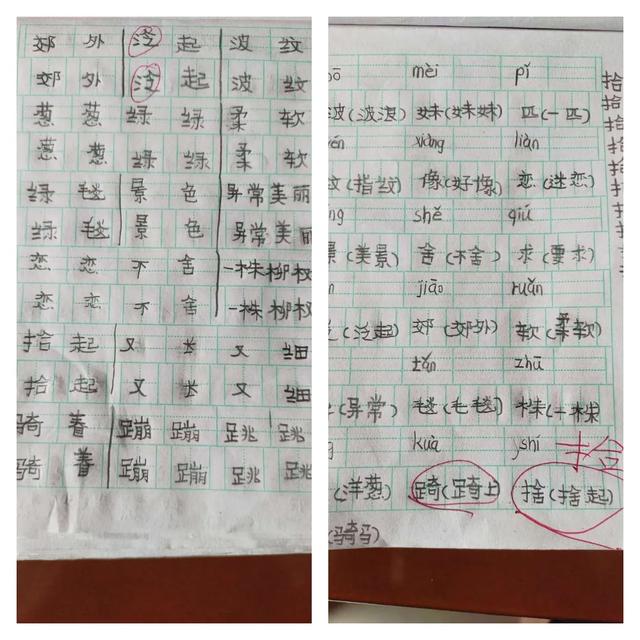 郊外 泛起 波纹
郊外 泛起 波纹
葱葱 绿绿 柔软
葱葱 绿绿 柔软
绿毯 景色 异常美丽
绿毯 景色 异常美丽
恋恋不舍 一株柳杈
恋恋不舍 一株柳杈
拾起 又长又细
拾起 又长又细
骑着 蹦蹦跳跳
骑着 蹦蹦跳跳
mèi pǐ
波(波浪) 妹(妹妹) 匹(一匹)
xiàng liàn
(指纹) 像(好像) 恋(迷恋)
shě qiú
景(美景) 舍(不舍) 求(要求)
jiāo ruǎn
(泛起) 郊(郊外) 软(柔软)
tǎn zhū
(异常) 毯(毛毯) 株(一株)
kuà shí
(洋葱) (上) (起)
拾
(骑马)
拾
拾
拾
拾
拾